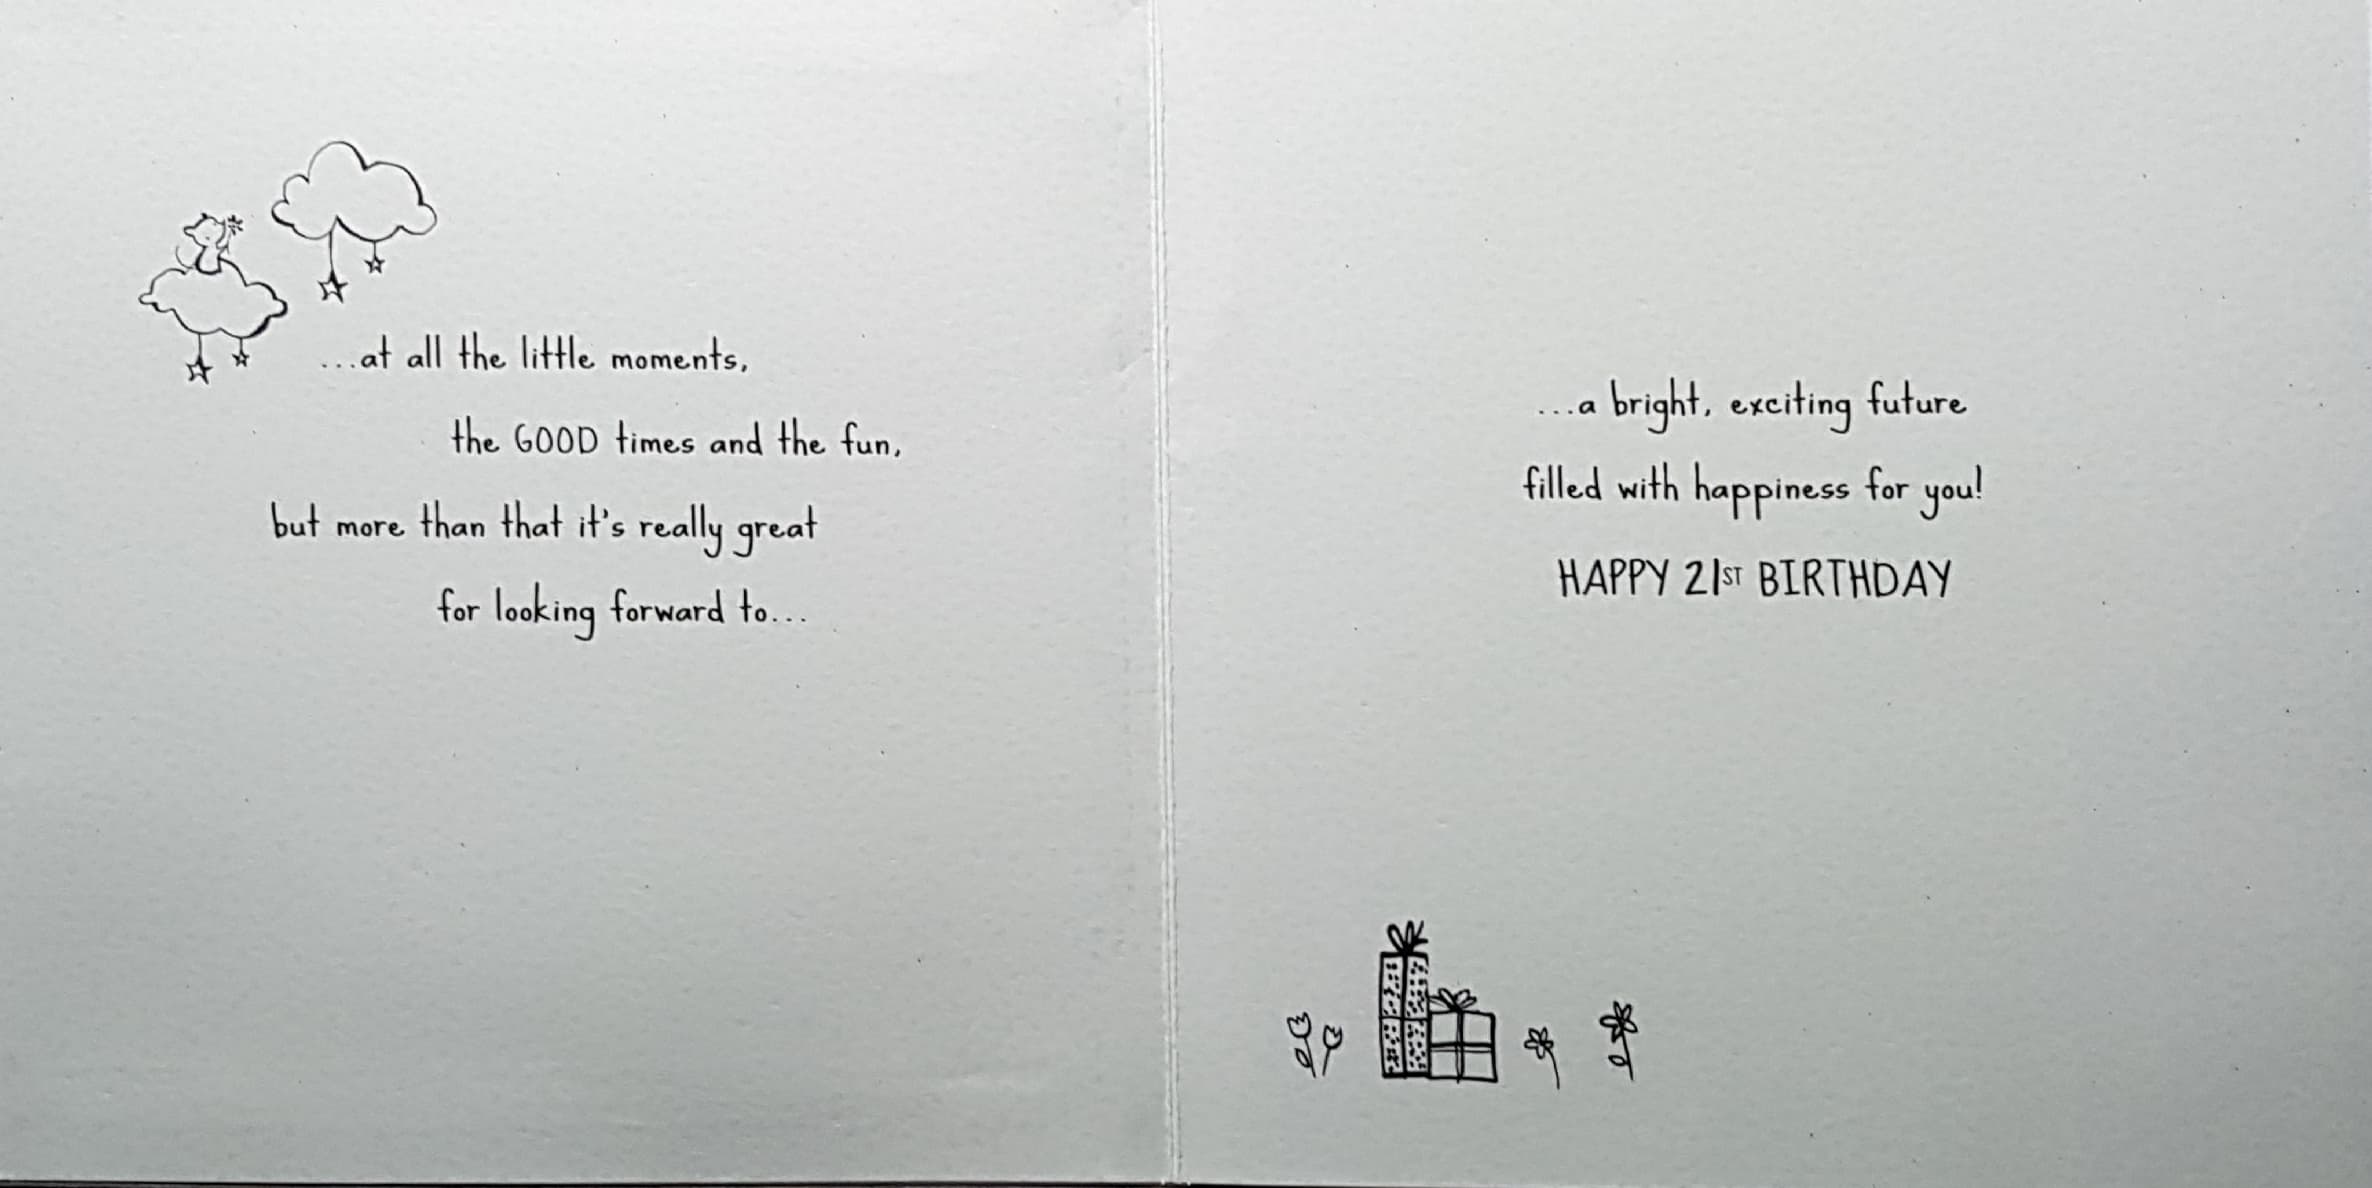 ...at all the little moments,
the GOOD times and the fun,
but more than that it's really great
for looking forward to...
...a bright, exciting future
filled with happiness for you!
HAPPY 21ST BIRTHDAY